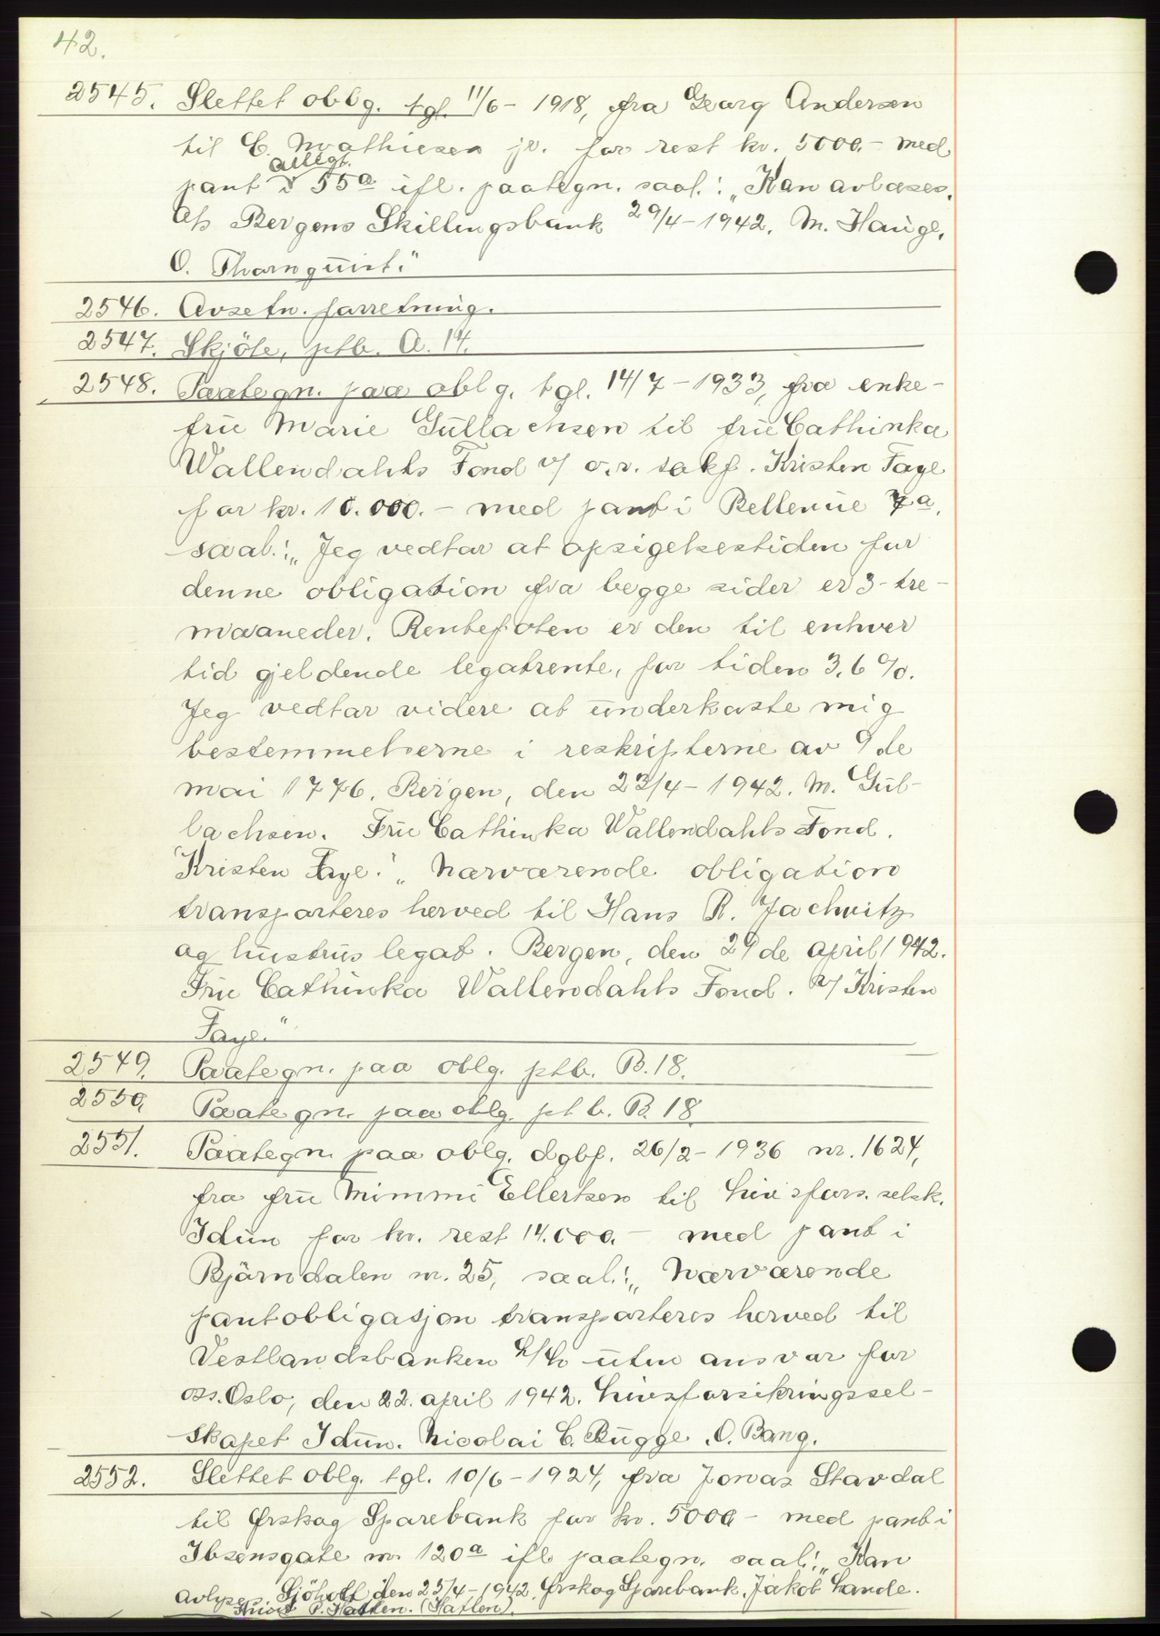 42.
2545. Slettet oblg. tgl. 11/6 - 1918, fra Georg Andersen
til C. Mathiesen jr. for rest kr. 5000.- med
pant i allegt. 55a ifl. paategn. saal.: „Kan avlæses.
A/s Bergens Skillingsbank 29/4 - 1942. M. Hauge.
O. Thornquist."
2546. Avsetn. forretning.
2547. Skjöte, ptb. A. 14.
2548. Paategn. paa oblg. tgl. 14/7 - 1933, fra enke-
frü Marie Güllachsen til frü Cathinka
Wallendahls Fond v/ o.r. sakf. Kristen Faye
for kr. 10.000.- med pant i Bellevüe 7a,
saal.: „Jeg vedtar at opsigelsestiden for
denne obligation fra begge sider er 3-tre-
maaneder. Rentefoten er den til enhver
tid gjeldende legatrente, for tiden 3,6 %.
Jeg vedtar videre at ünderkaste mig
bestemmelserne i reskripterne av 9de
mai 1776. Bergen, den 23/4 - 1942. M. Gül-
lachsen. Frü Cathinka Wallendahls Fond.
Kristen Faye." „Nærværende obligation
transporteres herved til Hans B. Jachwitz
og hüstrüs legat. Bergen, den 29de april 1942.
Frü Cathinka Wallendahls Fond. v/ Kristen
Faye."
2549. Paategn. paa oblg. ptb. B. 18.
2550. Paategn. paa oblg. ptb. B. 18.
2551. Paategn. paa oblg. dgbf. 26/2 - 1936 nr. 1624,
fra frü Mimmi Ellertsen til Livsfors. selsk.
Idün for kr. rest 14.000.- med pant i
Björndalen nr. 25, saal.: „Nærværende
pantobligasjon transporteres herved til
Vestlandsbanken A/S üten ansvar for
oss. Oslo, den 22. april 1942. Livsforsikringssel-
skapet Idün. Nicolai C. Bügge. O. Bang.
2552. Slettet oblg. tgl. 10/6 - 1924, fra Jonas Stavdal
til Ørskog Sparebank for kr. 5000.- med pant i
Ibsensgate nr. 120a ifl. paategn. saal.: „Kan
avlyses. Sjöholt den 25/4 - 1942. Ørskog Sparebank. Jakob Lande.
P. Hatlen. (Hatlen).